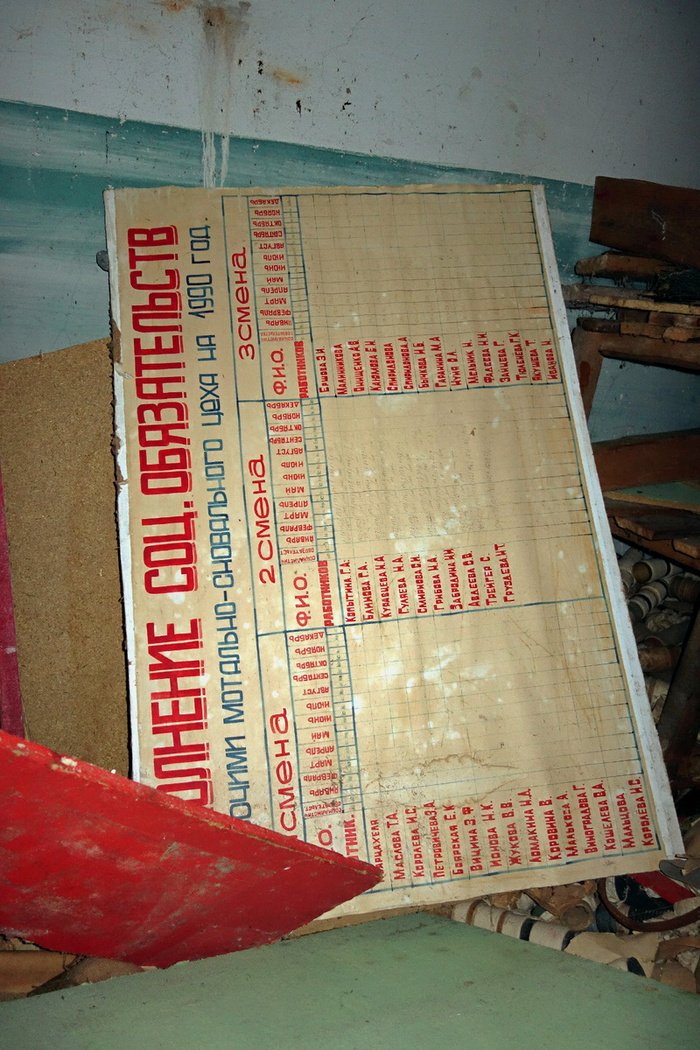 ОЛНЕНИЕ СОЦ. ОБЯЗАТЕЛЬСТВ
ОЧИМИ МОТАЛЬНО-СНОВАЛЬНОГО ЦЕХА НА 1990 ГОД.
СМЕНА
.О.
ТНИК.
ЯНВАРЬ
ФЕВРАЛЬ
МАРТ
АПРЕЛЬ
МАЙ
ИЮНЬ
ИЮЛЬ
АВГУСТ
СЕНТЯБРЬ
ОКТЯБРЬ
НОЯБРЬ
ДЕКАБРЬ
МАСЛОВА Т.А.
КОРОЛЕВА И.С.
ПЕТРОВИЧЕВА З.А.
БОЯРСКАЯ Е.К
ВИЦИНА З.Ф.
ИОНОВА Н.К.
ЖУКОВА В.В.
ЛОМАКИНА Н.Д.
КОРОВИНА В.
ВИНОГРАДОВА Г.
КОШЕЛЕВА В.А.
МАЛЬЦОВА
КОРОЛЕВА И.С.
2 СМЕНА
Ф.И.О.
РАБОТНИКОВ
ЯНВАРЬ
ФЕВРАЛЬ
МАРТ
АПРЕЛЬ
МАЙ
ИЮНЬ
ИЮЛЬ
АВГУСТ
СЕНТЯБРЬ
ОКТЯБРЬ
НОЯБРЬ
ДЕКАБРЬ
КОПЫТИНА Г.А.
БЛИНОВА Г.А.
КУРАВЦЕВА Н.А
ГУЛЯЕВА Н.А.
СМИРНОВА Е.И.
ГРИБОВА Н.А.
ЗАБРОДИНА Н.И.
АВДЕЕВА С.В.
ТРЕЙГЕР С.
ГРУЗДЕВА И.Т.
3 СМЕНА
Ф.И.О.
РАБОТНИКОВ
ЯНВАРЬ
ФЕВРАЛЬ
МАРТ
АПРЕЛЬ
МАЙ
ИЮНЬ
ИЮЛЬ
АВГУСТ
СЕНТЯБРЬ
ОКТЯБРЬ
НОЯБРЬ
ДЕКАБРЬ
ЕРШОВА З.И.
МАЛИННИКОВА
ОНИЩЕНКО А.О
КАЛАМОВА Е.Н.
СПИРИДОНОВА
СПИРИДОНОВА А
БЫЧКОВА Н.Б.
ГАРАНИНА М.А
МУНИ В.А.
МЕЛЬНИК Н.
ФАДЕЕВА Н.Н.
ЗАЙЦЕВА Г.
ТЮЛЕНЕВА Г.К
ЯКУШЕВА Т
ИВАНОВА И.